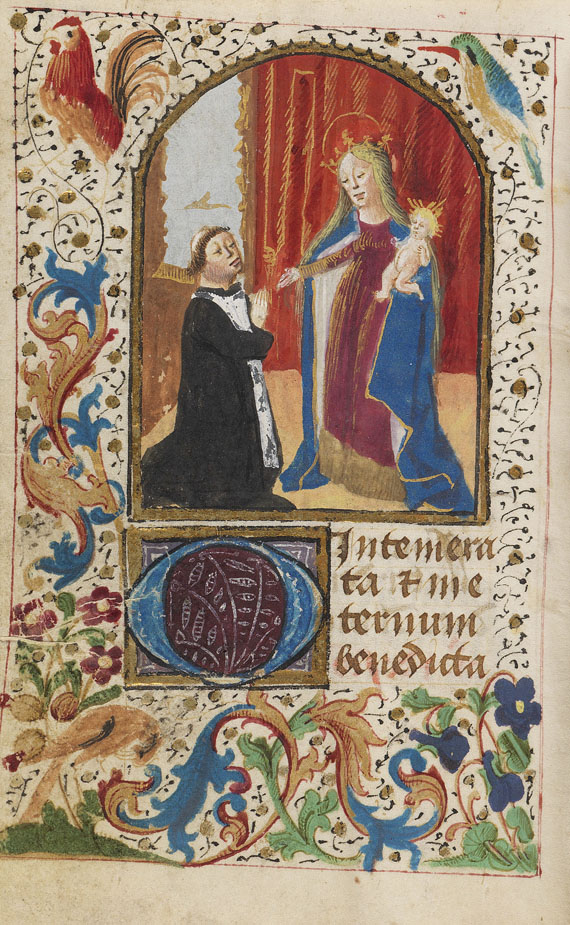 O Intemera
ta et in e
ternum
benedicta